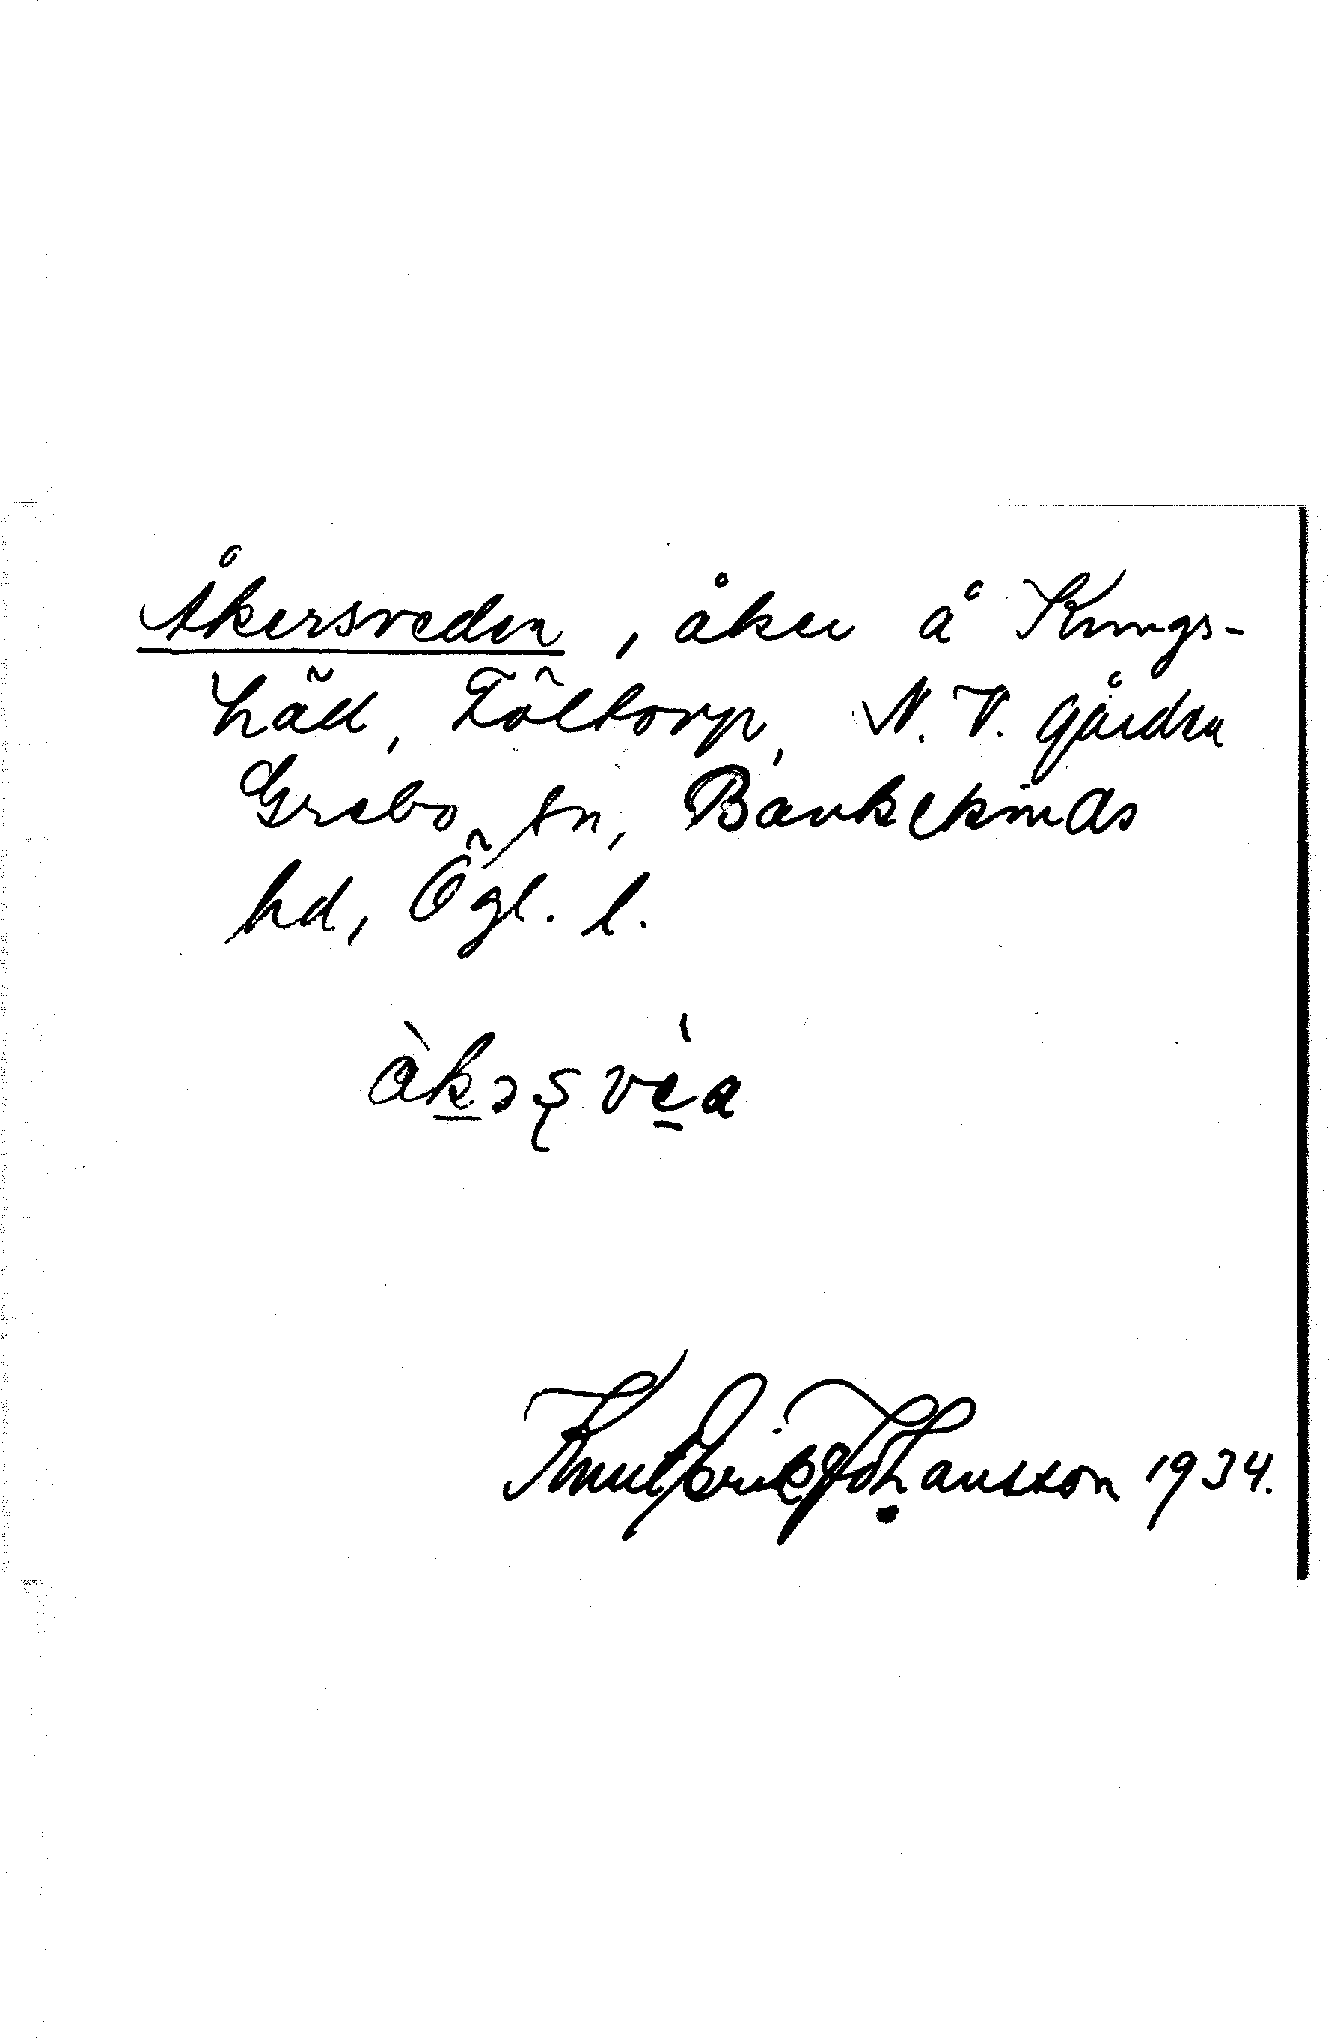 Åkersveden, åker å Kungs-
häll, Föltorp, N. V. gården
Grebo sn, Bankekinds
hd, Ögl. l.
Knut Erik Johansson 1934.